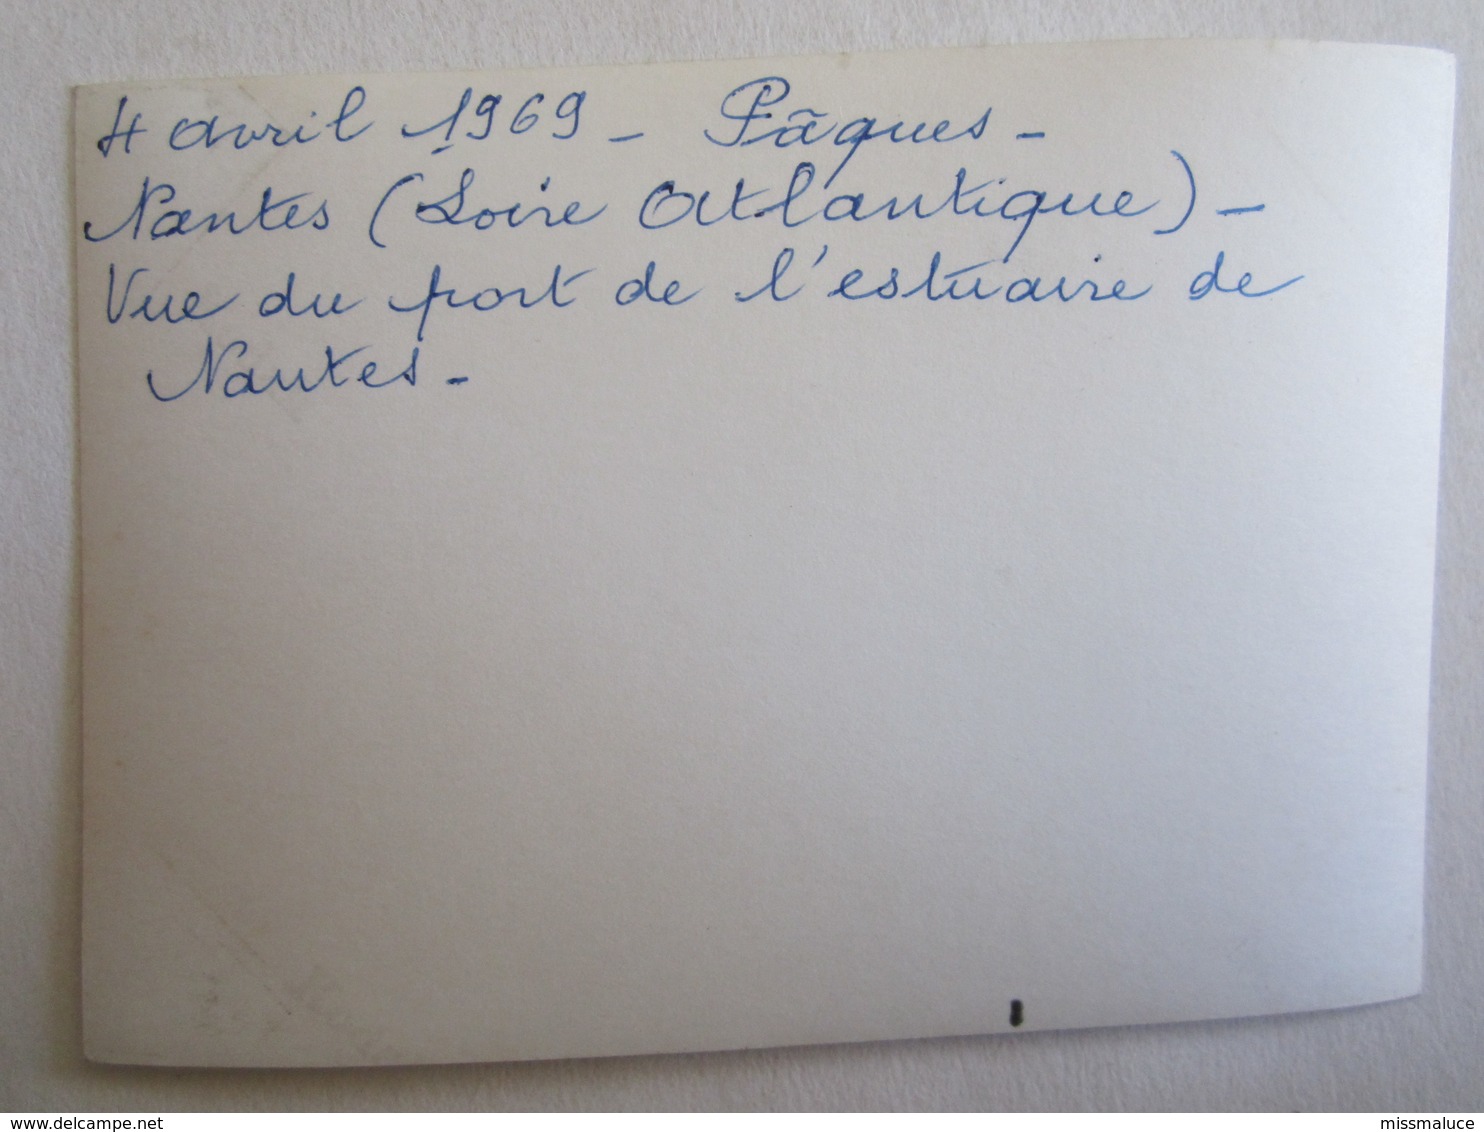 4 avril 1969 - Pâques -
Nantes (Loire Atlantique) -
Vue du port de l'estuaire de
Nantes -
delcampe.net
missmaluce